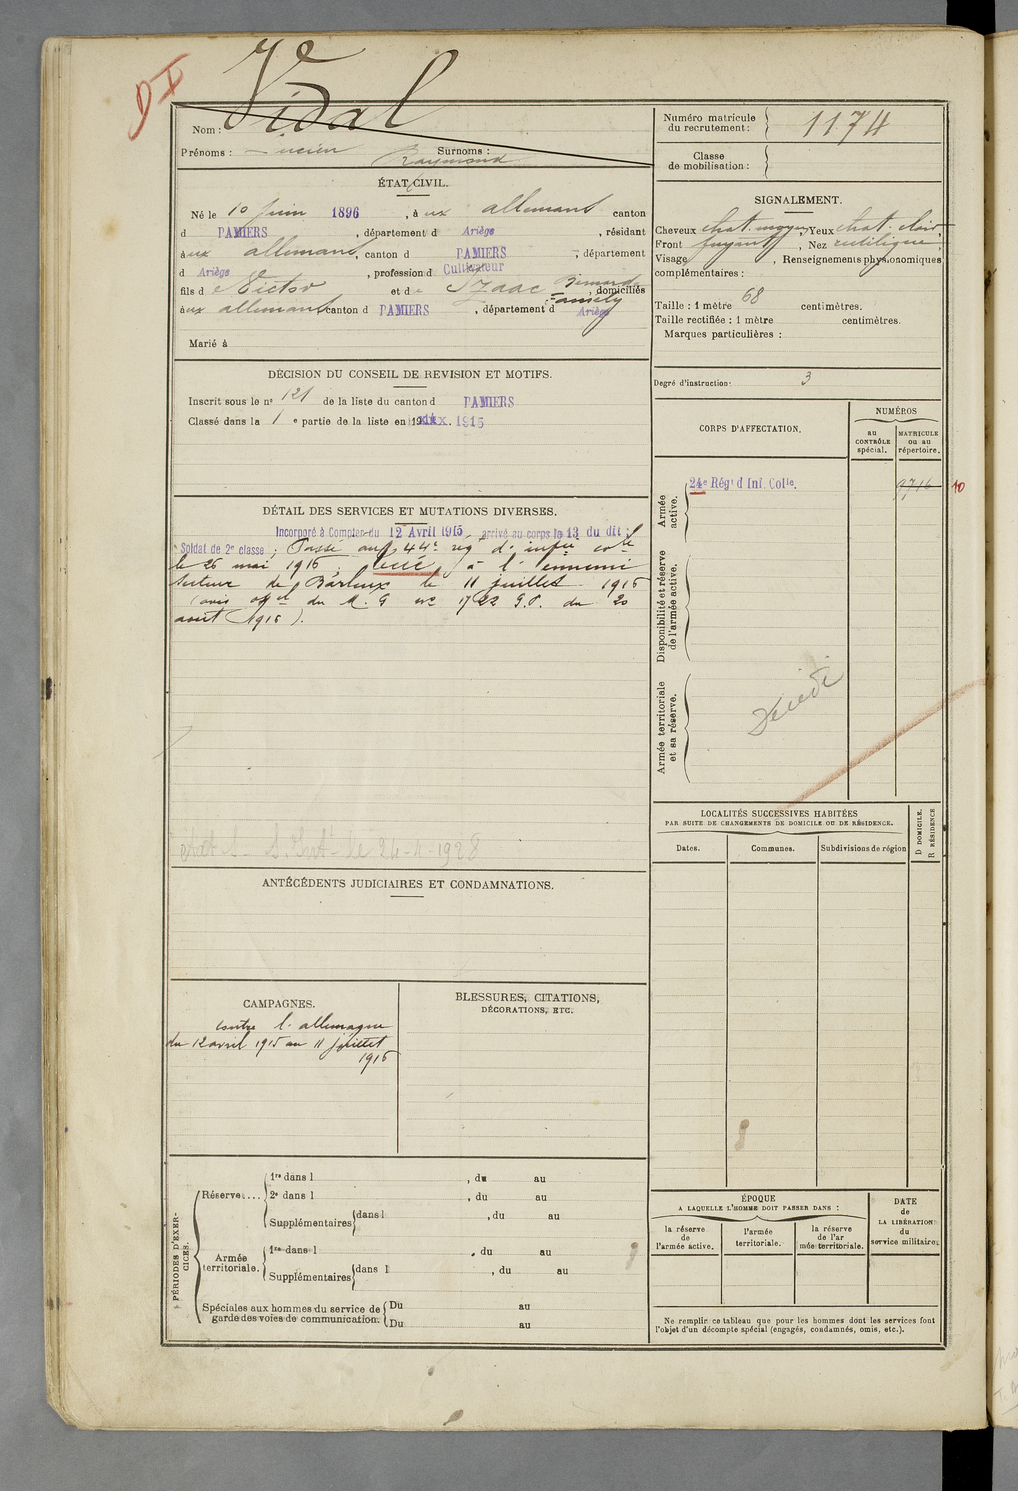 D I
Vidal
Nom :
Prénoms : Lucien Raymond Surnoms :
ÉTAT CIVIL.
Né le 10 Juin 1896, à ux allemans canton
d PAMIERS, département d Ariège, résidant
à ux allemans, canton d PAMIERS, département
d Ariège, profession d Cultivateur
fils d e Victor et d e Izaac Bernarde Fanély, domiciliés
à ux allemans canton d PAMIERS, département d Ariège
Marié à
DÉCISION DU CONSEIL DE REVISION ET MOTIFS.
Inscrit sous le n° 121 de la liste du canton d PAMIERS
Classé dans la 1 e partie de la liste en 19 1915
DÉTAIL DES SERVICES ET MUTATIONS DIVERSES.
Incorporé à Compter du 12 Avril 1915, arrivé au corps le 13 du dit ;
Soldat de 2e classe ; Passé au 44e rég. d' infie cole
le 26 mai 1916 ; tué à l' ennemi
secteur de Barleux le 11 juillet 1916
(avis offel du M. G no 1722 G.P. du 20
août 1916 ).
S. Int. le 24-4-1928
ANTÉCÉDENTS JUDICIAIRES ET CONDAMNATIONS.
CAMPAGNES.
contre l' allemagne
du 12 avril 1915 au 11 juillet
1916
BLESSURES, CITATIONS,
DÉCORATIONS, ETC.
PÉRIODES D'EXERCICES.
Réserve....
1re dans l , du au
2e dans l , du au
Supplémentaires dans l , du au
Armée territoriale.
1re dans l , du au
Supplémentaires dans l , du au
Spéciales aux hommes du service de garde des voies de communication.
Du au
Du au
Numéro matricule du recrutement : 1174
Classe de mobilisation :
SIGNALEMENT.
Cheveux chat. moyen, Yeux chat. clair
Front fuyant, Nez rectiligne
Visage , Renseignements physionomiques
complémentaires :
Taille : 1 mètre 68 centimètres.
Taille rectifiée : 1 mètre centimètres.
Marques particulières :
Degré d'instruction : 3
CORPS D'AFFECTATION.
NUMÉROS
au CONTRÔLE spécial.
MATRICULE ou au répertoire.
Armée active.
24e Régt d Inf. Colle. 9716 10
Disponibilité et réserve de l'armée active.
Armée territoriale et sa réserve.
Décédé
LOCALITÉS SUCCESSIVES HABITÉES
PAR SUITE DE CHANGEMENTS DE DOMICILE OU DE RÉSIDENCE.
D DOMICILE.
R RÉSIDENCE
Dates.
Communes.
Subdivisions de région
ÉPOQUE
A LAQUELLE L'HOMME DOIT PASSER DANS :
la réserve de l'armée active.
l'armée territoriale.
la réserve de l'armée territoriale.
DATE de LA LIBÉRATION du service militaire.
Ne remplir ce tableau que pour les hommes dont les services font
l'objet d'un décompte spécial (engagés, condamnés, omis, etc.).